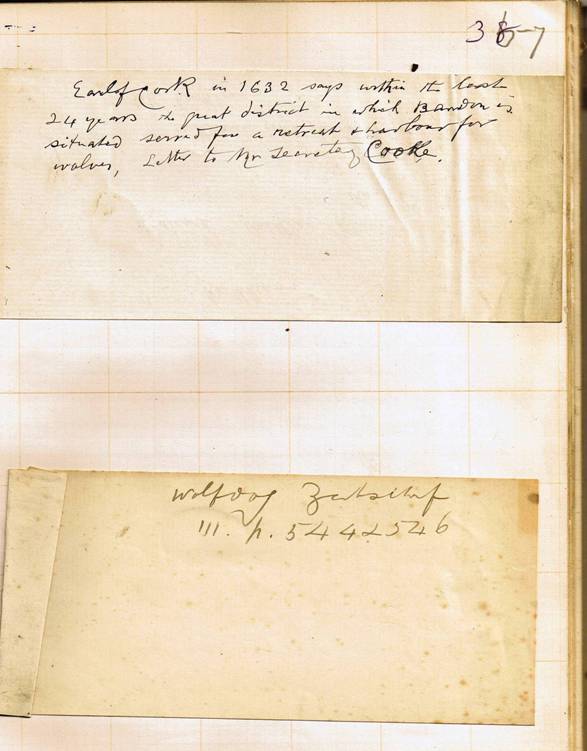 357
Earl of Cork in 1632 says within the last
24 years the great district in which Bandon is
situated served for a retreat & harbour for
wolves, Letter to Mr Secretary Cooke.
Wolfdog Zeitschrf
III. p. 544 & 546